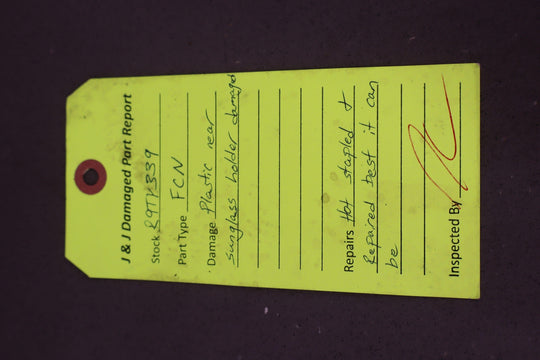 J & I Damaged Part Report
Stock R9TK339
Part Type FCN
Damage Plastic near
sunglass holder damaged
Repairs Hot stapled +
Repaired best it can
be
Inspected By